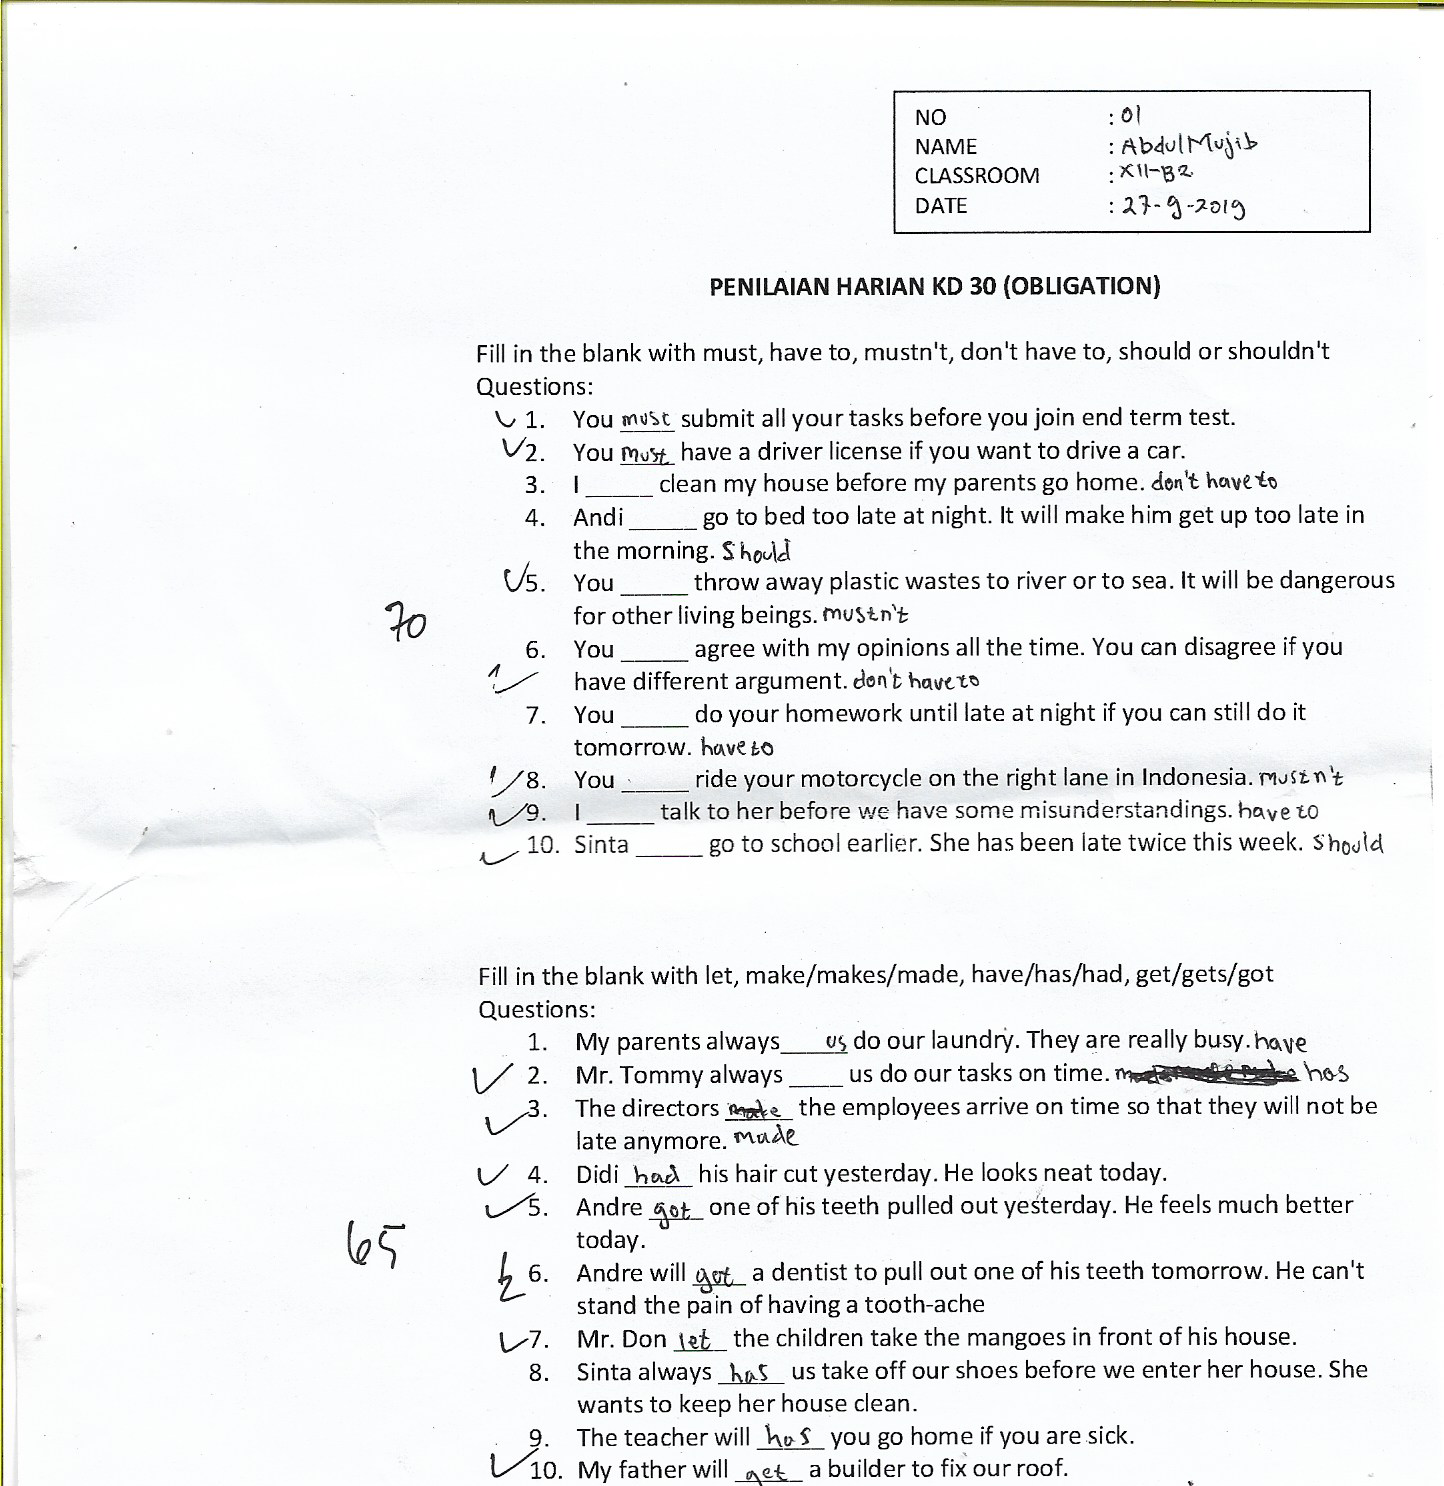 NO : 01
NAME : Abdul Mujib
CLASSROOM : XII-B2
DATE : 27-9-2019
PENILAIAN HARIAN KD 30 (OBLIGATION)
Fill in the blank with must, have to, mustn't, don't have to, should or shouldn't
Questions:
1. You must submit all your tasks before you join end term test.
2. You must have a driver license if you want to drive a car.
3. I _____ clean my house before my parents go home. don't have to
4. Andi _____ go to bed too late at night. It will make him get up too late in
the morning. Should
5. You _____ throw away plastic wastes to river or to sea. It will be dangerous
for other living beings. mustn't
70
6. You _____ agree with my opinions all the time. You can disagree if you
have different argument. don't have to
7. You _____ do your homework until late at night if you can still do it
tomorrow. have to
8. You _____ ride your motorcycle on the right lane in Indonesia. mustn't
9. I _____ talk to her before we have some misunderstandings. have to
10. Sinta _____ go to school earlier. She has been late twice this week. Should
Fill in the blank with let, make/makes/made, have/has/had, get/gets/got
Questions:
1. My parents always_____ us do our laundry. They are really busy. have
2. Mr. Tommy always ____ us do our tasks on time. has
3. The directors make the employees arrive on time so that they will not be
late anymore. made
4. Didi had his hair cut yesterday. He looks neat today.
5. Andre got one of his teeth pulled out yesterday. He feels much better
today.
65
½ 6. Andre will got a dentist to pull out one of his teeth tomorrow. He can't
stand the pain of having a tooth-ache
7. Mr. Don let the children take the mangoes in front of his house.
8. Sinta always has us take off our shoes before we enter her house. She
wants to keep her house clean.
9. The teacher will has you go home if you are sick.
10. My father will get a builder to fix our roof.